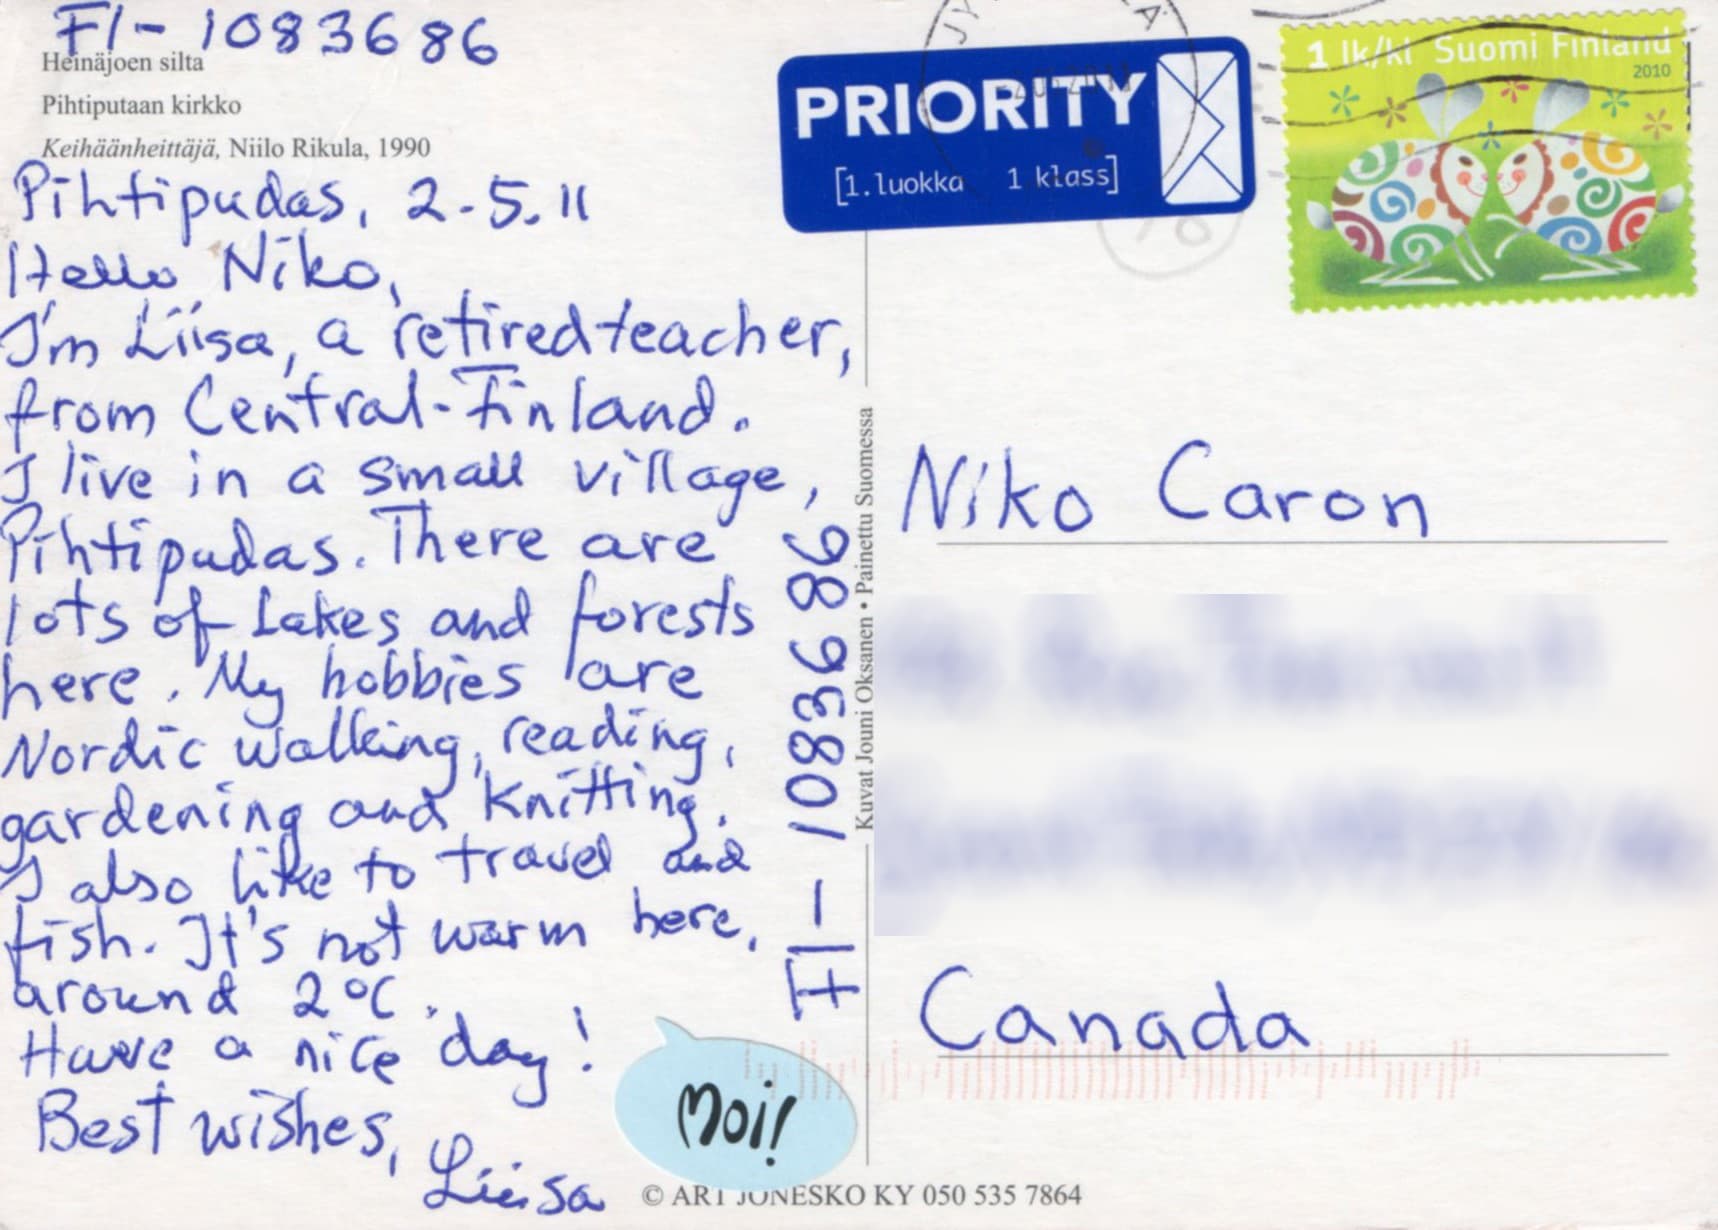 FI-1083686
Heinäjoen silta
Pihtiputaan kirkko
Keihäänheittäjä, Niilo Rikula, 1990
Pihtipudas, 2.5.11
Hello Niko,
I'm Liisa, a retired teacher,
from Central-Finland.
I live in a small village,
Pihtipudas. There are
lots of lakes and forests
here. My hobbies are
Nordic walking, reading,
gardening and knitting.
I also like to travel and
fish. It's not warm here,
around 2°C.
Have a nice day!
Best wishes,
Liisa
Moi!
FI-1083686
Kuvat Jouni Oksanen • Painettu Suomessa
© ART JONESKO KY 050 535 7864
PRIORITY
[1.luokka 1 klass]
1 lk/kl Suomi Finland
2010
Niko Caron
Canada